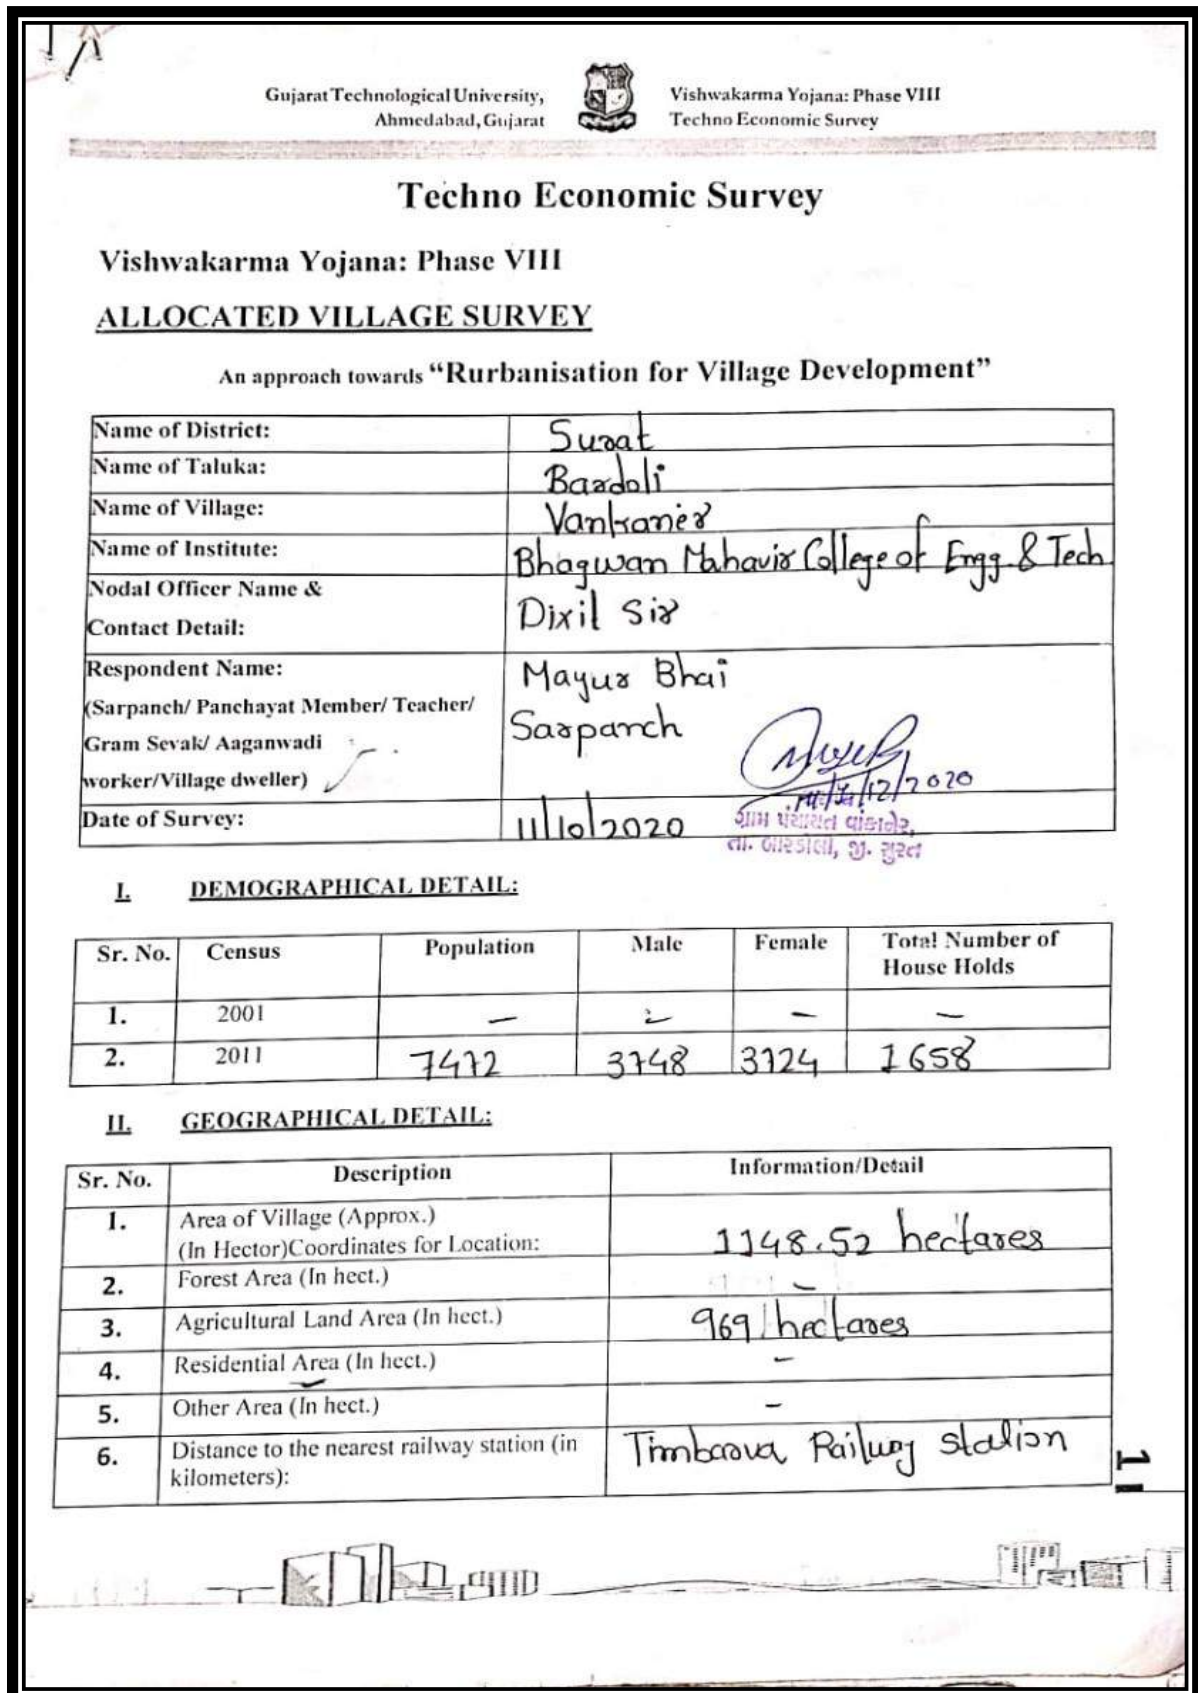 Gujarat Technological University,
Ahmedabad, Gujarat
Vishwakarma Yojana: Phase VIII
Techno Economic Survey
Techno Economic Survey
Vishwakarma Yojana: Phase VIII
ALLOCATED VILLAGE SURVEY
An approach towards “Rurbanisation for Village Development”
Name of District: Surat
Name of Taluka: Bardoli
Name of Village: Vankaner
Name of Institute: Bhagwan Mahavir College of Engg. & Tech
Nodal Officer Name &
Contact Detail: Dixil Sir
Respondent Name: Mayur Bhai
(Sarpanch/ Panchayat Member/ Teacher/ Sarpanch
Gram Sevak/ Aaganwadi
worker/Village dweller)
/12/2020
Date of Survey: 11/10/2020
ગ્રામ પંચાયત વાંકાનેર,
તા. બારડોલી, જી. સુરત
I. DEMOGRAPHICAL DETAIL:
Sr. No. Census Population Male Female Total Number of
House Holds
1. 2001 - - - -
2. 2011 7472 3748 3724 1658
II. GEOGRAPHICAL DETAIL:
Sr. No. Description Information/Detail
1. Area of Village (Approx.)
(In Hector)Coordinates for Location: 1148.52 hectares
2. Forest Area (In hect.) -
3. Agricultural Land Area (In hect.) 969 hectares
4. Residential Area (In hect.) -
5. Other Area (In hect.) -
6. Distance to the nearest railway station (in Timbarva Railway station
kilometers):
1